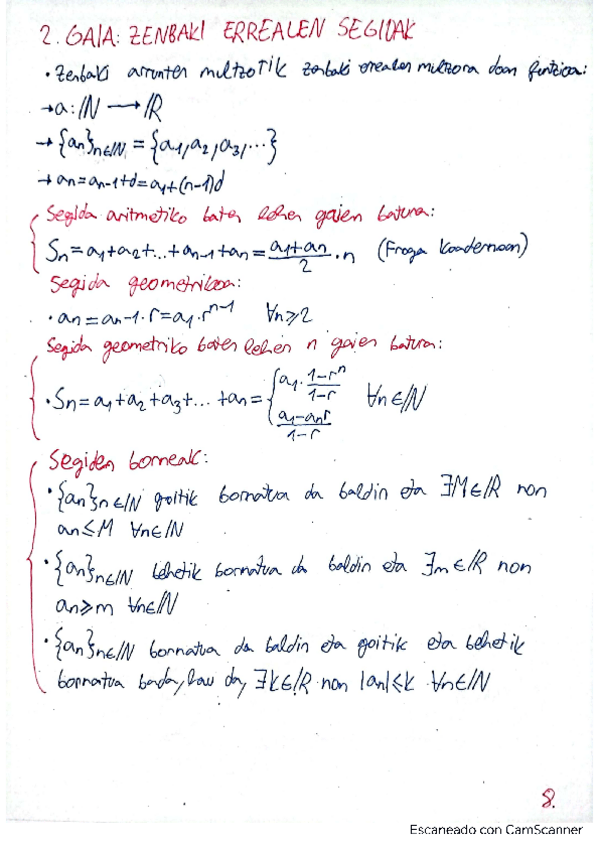 2. GAIA: ZENBAKI ERREALEN SEGIDAK
• Zenbaki arrunten multzotik zenbaki errealen multzora doan funtzioa:
→ a: ℕ → ℝ
→ {an}n∈ℕ = {a1, a2, a3, ...}
→ an = an-1 + d = a1 + (n-1)d
Segida aritmetiko baten lehen gaien batura:
Sn = a1 + a2 + ... + an-1 + an = (a1 + an)/2 · n (Froga koadernoan)
Segida geometrikoa:
• an = an-1 · r = a1 · r^(n-1) ∀n ≥ 2
Segida geometriko baten lehen n gaien batura:
• Sn = a1 + a2 + a3 + ... + an = { a1 · (1 - r^n)/(1 - r) ; (a1 - an r)/(1 - r) ∀n ∈ ℕ
Segiden borneak:
• {an}n∈ℕ goitik bornatua da baldin eta ∃M∈ℝ non
an ≤ M ∀n∈ℕ
• {an}n∈ℕ behetik bornatua da baldin eta ∃m∈ℝ non
an ≥ m ∀n∈ℕ
• {an}n∈ℕ bornatua da baldin eta goitik eta behetik
bornatua bada, hau da, ∃k∈ℝ non |an| ≤ k ∀n∈ℕ
8.
Escaneado con CamScanner